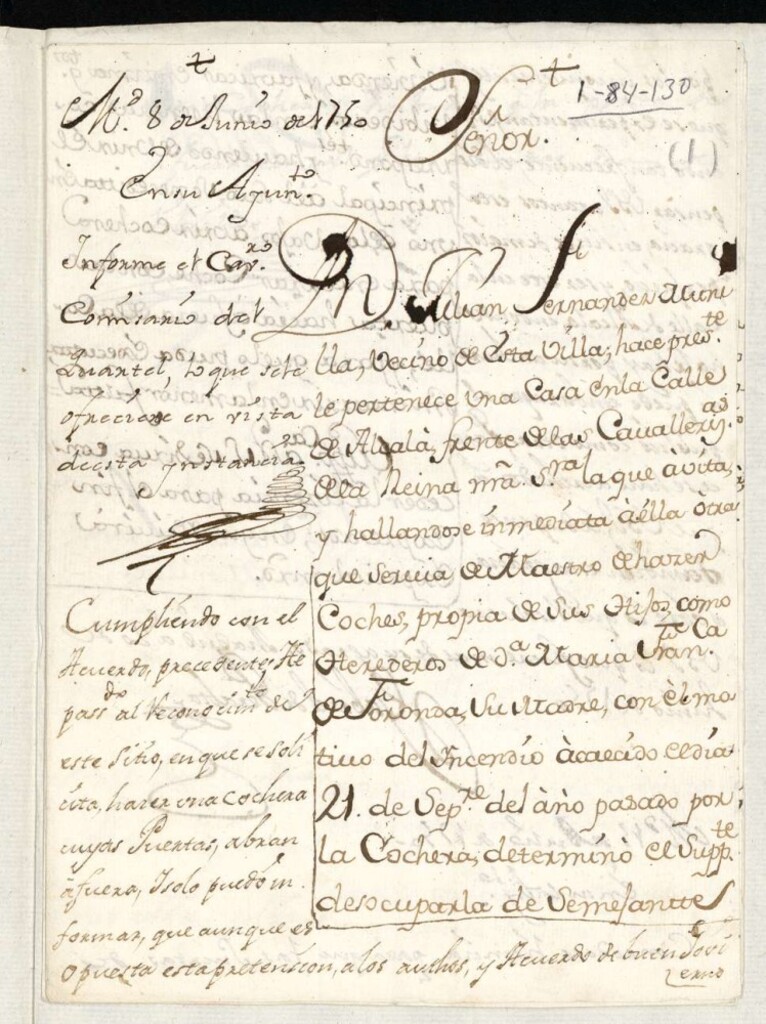 1-84-130
(1)
M.d 8 de Junio de 1750
En su Ayun.to
Informe el Cav.ro
Comisario del
Quartel, lo que se le
ofreciere en vista
de esta Instancia
Señor.
Dn. Julian Fernandez Muni
lla, Vecino de esta Villa; hace pres.te
le pertenece una Casa en la Calle
de Alcalà, frente de las Cavalleriz.as
de la Reina nrã. S.ra la que àvita,
y hallandose inmediata à ella òtra
que servia de Maestro de hazer
Coches, propia de sus Hijos, como
Herederos de d.a Maria Fran.ca
de Foronda, su Madre, con èl mo
tivo del Incendio àcaecido el dia
21. de Sep.re del àño pasado por
la Cochera, determinò el Supp.te
desocuparla de Semejanttes
Cumpliendo con el
Acuerdo, precedente, He
pass.do al Reconocim.to de
este Sitio, en que se soli
cita, hazer una cochera
cuyas Puertas, abran
àfuera, y solo puedo in
formar, que aunque es
opuesta esta pretension, a los authos, y Acuerdo de buen Govi
erno